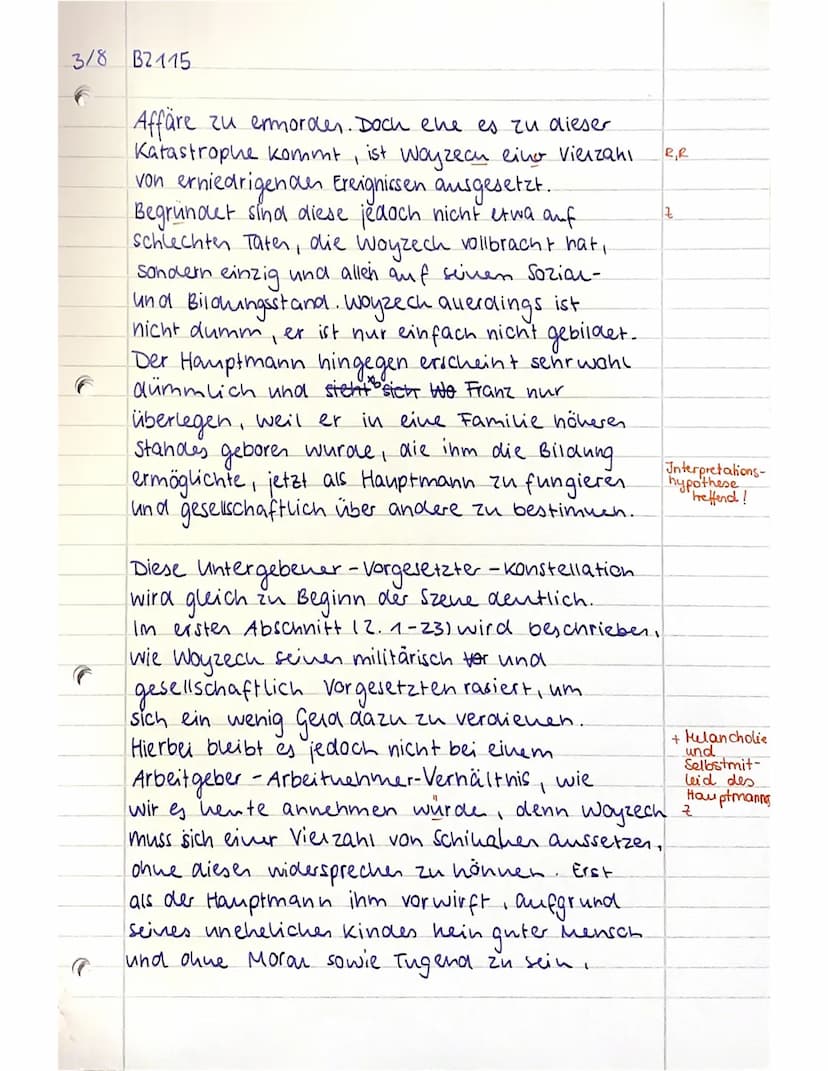 3/8 BZ115
Affäre zu ermorden. Doch ehe es zu dieser
Katastrophe kommt, ist Woyzeck einer Vielzahl
R,R
von erniedrigenden Ereignissen ausgesetzt.
Begründet sind diese jedoch nicht etwa auf
Z
schlechten Taten, die Woyzeck vollbracht hat,
sondern einzig und allein auf seinen Sozial-
und Bildungsstand. Woyzeck allerdings ist
nicht dumm, er ist nur einfach nicht gebildet.
Der Hauptmann hingegen erscheint sehr wohl
dümmlich und steht sich Wo Franz nur
überlegen, weil er in eine Familie höheren
Standes geboren wurde, die ihm die Bildung
ermöglichte, jetzt als Hauptmann zu fungieren
und gesellschaftlich über andere zu bestimmen.
Interpretations-
hypothese
treffend!
Diese Untergebener-Vorgesetzter-Konstellation
wird gleich zu Beginn der Szene deutlich.
Im ersten Abschnitt (Z. 1-23) wird beschrieben,
wie Woyzeck seinen militärisch vor und
gesellschaftlich Vorgesetzten rasiert, um
sich ein wenig Geld dazu zu verdienen.
Hierbei bleibt es jedoch nicht bei einem
Arbeitgeber-Arbeitnehmer-Verhältnis, wie
wir es heute annehmen würde, denn Woyzeck
+ Melancholie
und
Selbstmit-
leid des
Hauptmanns
Z
muss sich einer Vielzahl von Schikanen aussetzen,
ohne diesen widersprechen zu können. Erst
als der Hauptmann ihm vorwirft, aufgrund
seines unehelichen Kindes kein guter Mensch
und ohne Moral sowie Tugend zu sein,